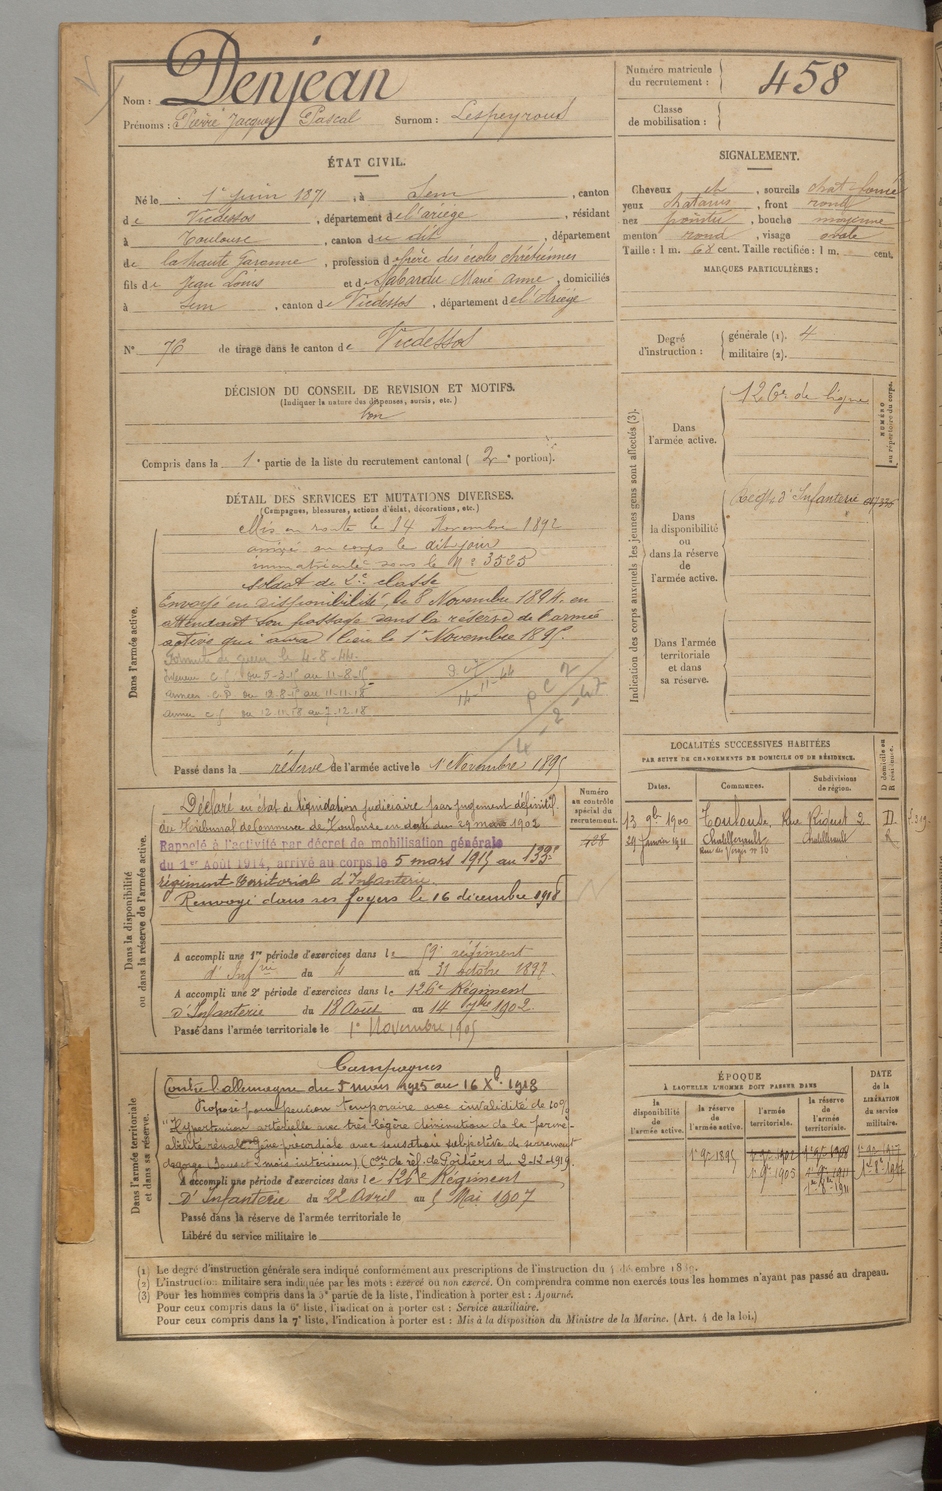 Nom : Denjean
Prénoms : Pierre Jacques Pascal Surnom : Lespeyrous
Numéro matricule du recrutement : 458
Classe de mobilisation :
ÉTAT CIVIL.
Né le 1er Juin 1871, à Sem, canton
de Vicdessos, département de l'ariège, résidant
à Toulouse, canton du dit, département
de la haute Garonne, profession de frère des écoles chrétiennes
fils de Jean Louis et de Marie Anne, domiciliés
à Sem, canton de Vicdessos, département de l'Ariège
N° 76 de tirage dans le canton de Vicdessos
SIGNALEMENT.
Cheveux et, sourcils chat. foncé
yeux chatains, front rond
nez pointu, bouche moyenne
menton rond, visage ovale
Taille : 1 m. 68 cent. Taille rectifiée : 1 m. cent.
MARQUES PARTICULIÈRES :
Degré d'instruction : générale (1). 4
militaire (2).
DÉCISION DU CONSEIL DE REVISION ET MOTIFS.
(Indiquer la nature des dispenses, sursis, etc.)
bon
Compris dans la 1e partie de la liste du recrutement cantonal (2e portion).
DÉTAIL DES SERVICES ET MUTATIONS DIVERSES.
(Campagnes, blessures, actions d'éclat, décorations, etc.)
Dans l'armée active.
Mis en route le 14 Novembre 1892
arrivé au corps le dit jour
immatriculé sous le N° 3525
Soldat de 2e classe
Envoyé en disponibilité, le 8 Novembre 1894, en
attendant son passage dans la réserve de l'armée
active qui aura lieu le 1er Novembre 1895.
Intérieur C.S. du 5-3-15 au 11-8-15
Armées C.D du 12-8-15 au 11-11-18
Armée C.S du 12-11-18 au 7-12-18
Passé dans la réserve de l'armée active le 1er Novembre 1895
Indication des corps auxquels les jeunes gens sont affectés (3).
NUMÉRO au répertoire du corps.
Dans l'armée active.
126e de ligne
Dans la disponibilité ou dans la réserve de l'armée active.
d'Infanterie
Dans l'armée territoriale et dans sa réserve.
Dans la disponibilité ou dans la réserve de l'armée active.
Déclaré en état de liquidation judiciaire par jugement définitif
du Tribunal de Commerce de Toulouse en date du 29 mars 1902
Rappelé à l'activité par décret de mobilisation générale
du 1er Août 1914, arrivé au corps le 5 mars 1915 au 133e
régiment territorial d'Infanterie.
Renvoyé dans ses foyers le 16 décembre 1918
Numéro au contrôle spécial du recrutement.
728
A accompli une 1re période d'exercices dans le 59e régiment
d'Infrie du 4 au 31 octobre 1897.
A accompli une 2e période d'exercices dans le 126e Régiment
d'Infanterie du 18 Août au 14 7bre 1902.
Passé dans l'armée territoriale le 1er Novembre 1905
LOCALITÉS SUCCESSIVES HABITÉES
PAR SUITE DE CHANGEMENTS DE DOMICILE OU DE RÉSIDENCE.
Dates. Communes. Subdivisions de région. D domicile ou R résidence.
13 9bre 1900 Toulouse, Rue Riquet 2 D
24 Janvier 1911 Chatellerault Chatellerault R
Dans l'armée territoriale et dans sa réserve.
Campagnes
Contre l'allemagne du 5 mars 1915 au 16 Xbre 1918
Proposé pour pension temporaire avec invalidité de 10%
"Hypertension artérielle avec très légère diminution de la perméabilité
rénale gêne précordiale avec sensation subjective de serrement
de gorge (Com de réf. de Poitiers du 2-12-1919
A accompli une période d'exercices dans le 126e Régiment
d'Infanterie du 22 Avril au 5 Mai 1907
Passé dans la réserve de l'armée territoriale le
Libéré du service militaire le
ÉPOQUE
À LAQUELLE L'HOMME DOIT PASSER DANS
la disponibilité de l'armée active. la réserve de l'armée active. l'armée territoriale. la réserve de l'armée territoriale.
DATE de la LIBÉRATION du service militaire.
1er 9bre 1895 1er 9bre 1902 1er 9bre 1908 1er 9bre 1917
1er 9bre 1905 1er 9bre 1911
(1) Le degré d'instruction générale sera indiqué conformément aux prescriptions de l'instruction du 4 décembre 1889.
(2) L'instruction militaire sera indiquée par les mots : exercé ou non exercé. On comprendra comme non exercés tous les hommes n'ayant pas passé au drapeau.
(3) Pour les hommes compris dans la 5e partie de la liste, l'indication à porter est : Ajourné.
Pour ceux compris dans la 6e liste, l'indication à porter est : Service auxiliaire.
Pour ceux compris dans la 7e liste, l'indication à porter est : Mis à la disposition du Ministre de la Marine. (Art. 4 de la loi.)